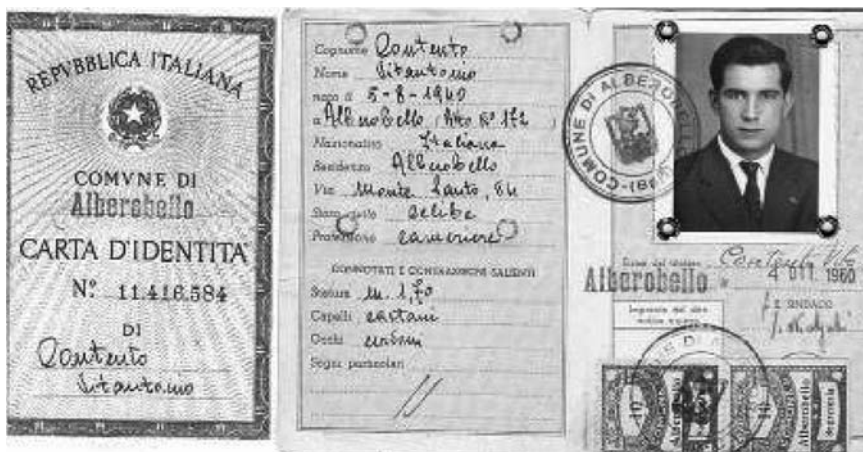 REPVBBLICA ITALIANA
COMVNE DI
Alberobello
CARTA D'IDENTITA
Nº 11.416.584
DI
Contento
Vitantonio
Cognome Contento
Nome Vitantonio
nato il 5-8-1940
a Alberobello (Atto Nº 172)
Nazionalità Italiana
Residenza Alberobello
Via Monte Santo, 84
Stato civile celibe
Professione cameriere
CONNOTATI E CONTRASSEGNI SALIENTI
Statura m. 1,70
Capelli castani
Occhi
Segni particolari
COMUNE DI ALBEROBELLO (BA)
Firma del titolare Contento Vito
Alberobello 4 OTT. 1960
IL SINDACO
Impronta del dito
indice sinistro
10
Alberobello
Alberobello
Segreteria